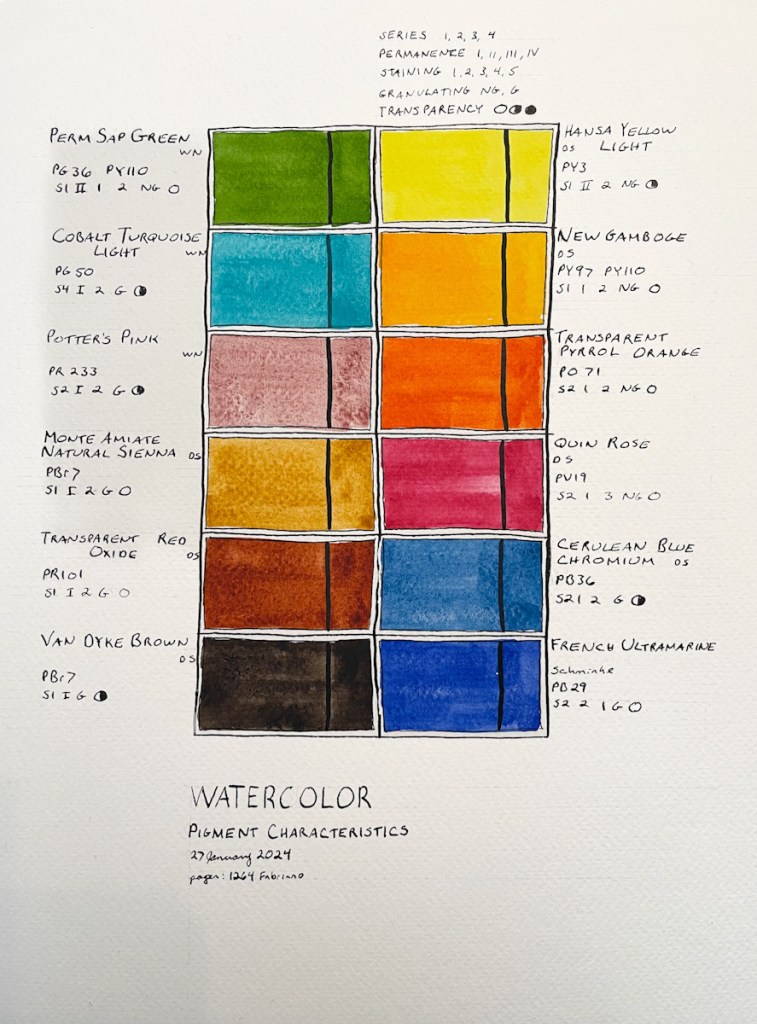 SERIES 1, 2, 3, 4
PERMANENCE I, II, III, IV
STAINING 1, 2, 3, 4, 5
GRANULATING NG, G
TRANSPARENCY ○◑●
PERM SAP GREEN
WN
PG36 PY110
S1 II 1 2 NG ○
COBALT TURQUOISE
LIGHT WN
PG 50
S4 I 2 G ◑
POTTER'S PINK
WN
PR 233
S2 I 2 G ◑
MONTE AMIATE
NATURAL SIENNA DS
PBr7
S1 I 2 G ○
TRANSPARENT RED
OXIDE DS
PR101
S1 I 2 G ○
VAN DYKE BROWN
DS
PBr7
S1 I G ◑
HANSA YELLOW
DS LIGHT
PY3
S1 II 2 NG ◑
NEW GAMBOGE
DS
PY97 PY110
S1 1 2 NG ○
TRANSPARENT
PYRROL ORANGE
PO 71
S2 1 2 NG ○
QUIN ROSE
DS
PV19
S2 1 3 NG ○
CERULEAN BLUE
CHROMIUM DS
PB36
S2 1 2 G ◑
FRENCH ULTRAMARINE
Schminke
PB29
S2 2 1 G ○
WATERCOLOR
PIGMENT CHARACTERISTICS
27 January 2024
paper: 1264 Fabriano